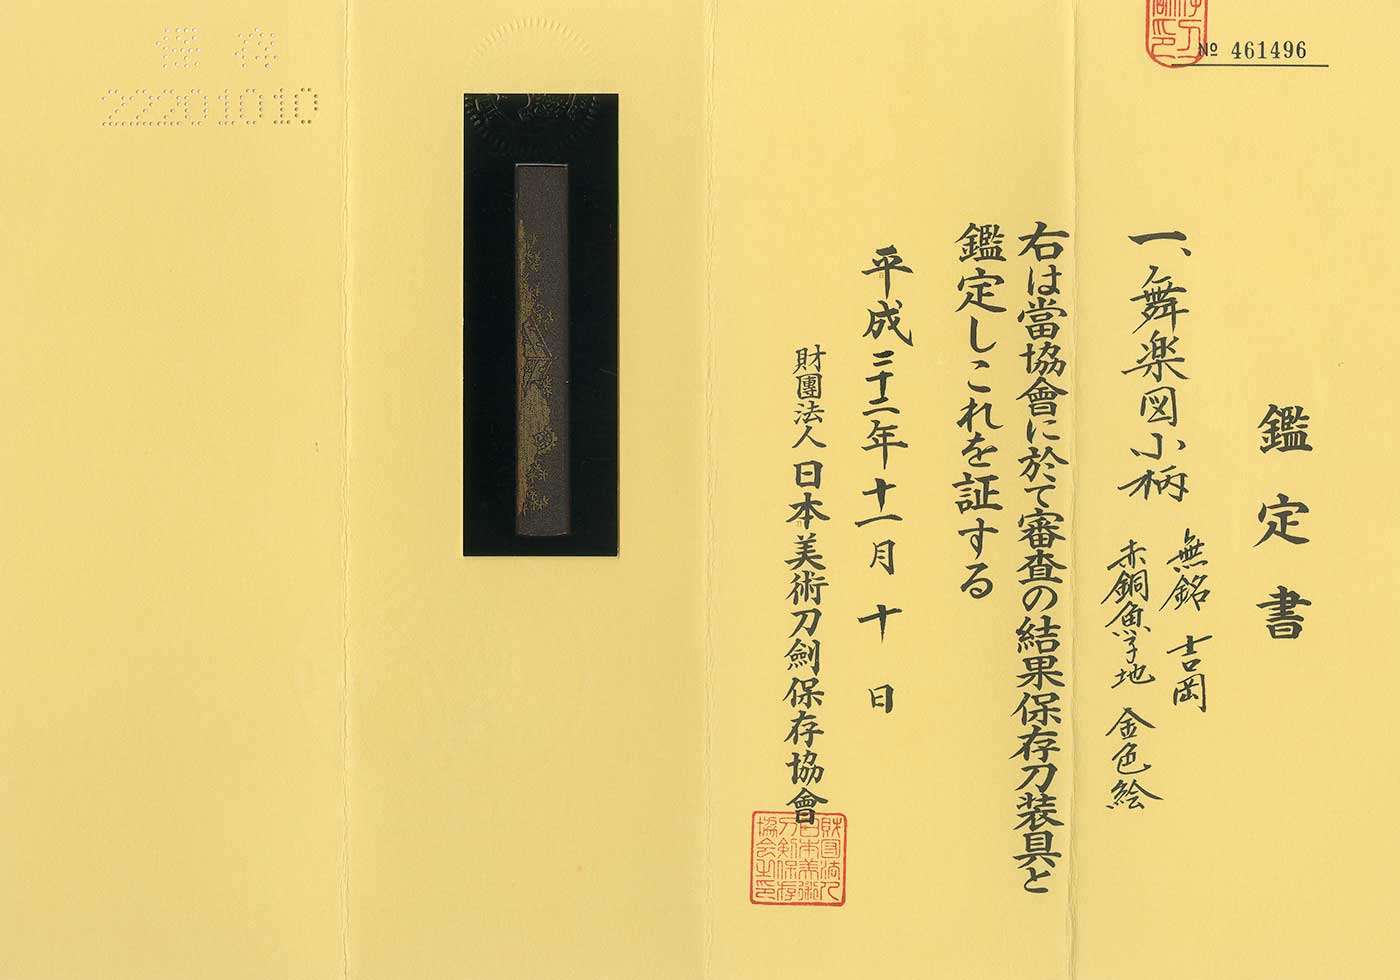 № 461496
鑑定書
一、舞楽図小柄
無銘 吉岡
赤銅魚子地 金色絵
右は當協會に於て審査の結果保存刀装具と
鑑定しこれを証する
平成二十二年十一月十日
財團法人日本美術刀劍保存協會
財団法人
日本美術
刀剣保存
協会之印
保存
22201010